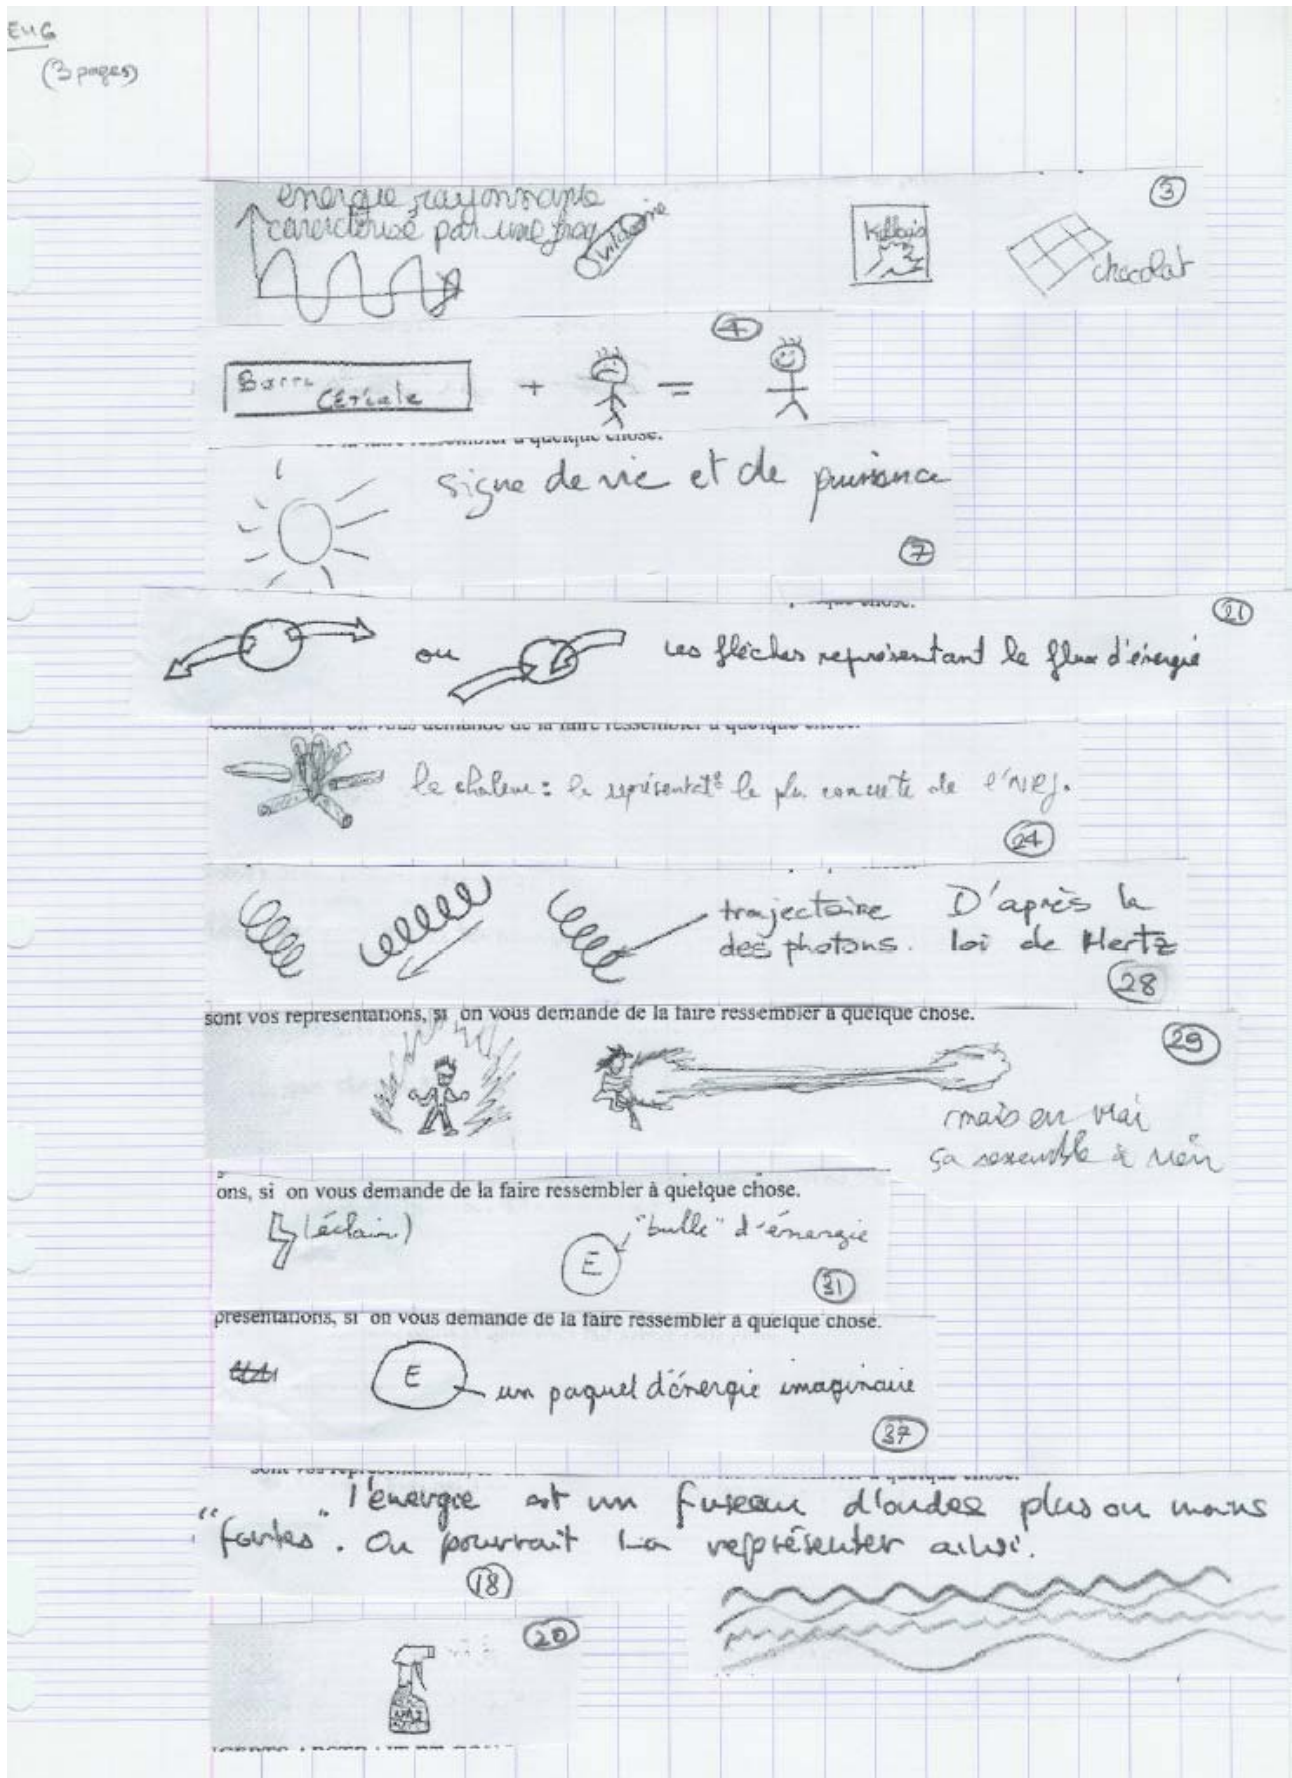 EUG
(3 pages)
3
énergie rayonnante
caractérisé par une freq
Kellog's
chocolat
4
Barre
Céréale
+ =
à quelque chose.
signe de vie et de puissance
7
21
ou Les flèches représentant le flux d'énergie
vous demande de la faire ressembler à quelque chose.
la chaleur : la représentat° la plu concrète de l'NRJ.
24
trajectoire D'après la
des photons. loi de Hertz
28
sont vos représentations, si on vous demande de la faire ressembler à quelque chose.
29
mais en vrai
ça ressemble à rien
ons, si on vous demande de la faire ressembler à quelque chose.
(éclair) "bulle" d'énergie
E
31
présentations, si on vous demande de la faire ressembler à quelque chose.
E un paquet d'énergie imaginaire
37
l'énergie est un fuseau d'ondes plus ou moins
"fortes". On pourrait la représenter ainsi.
18
20